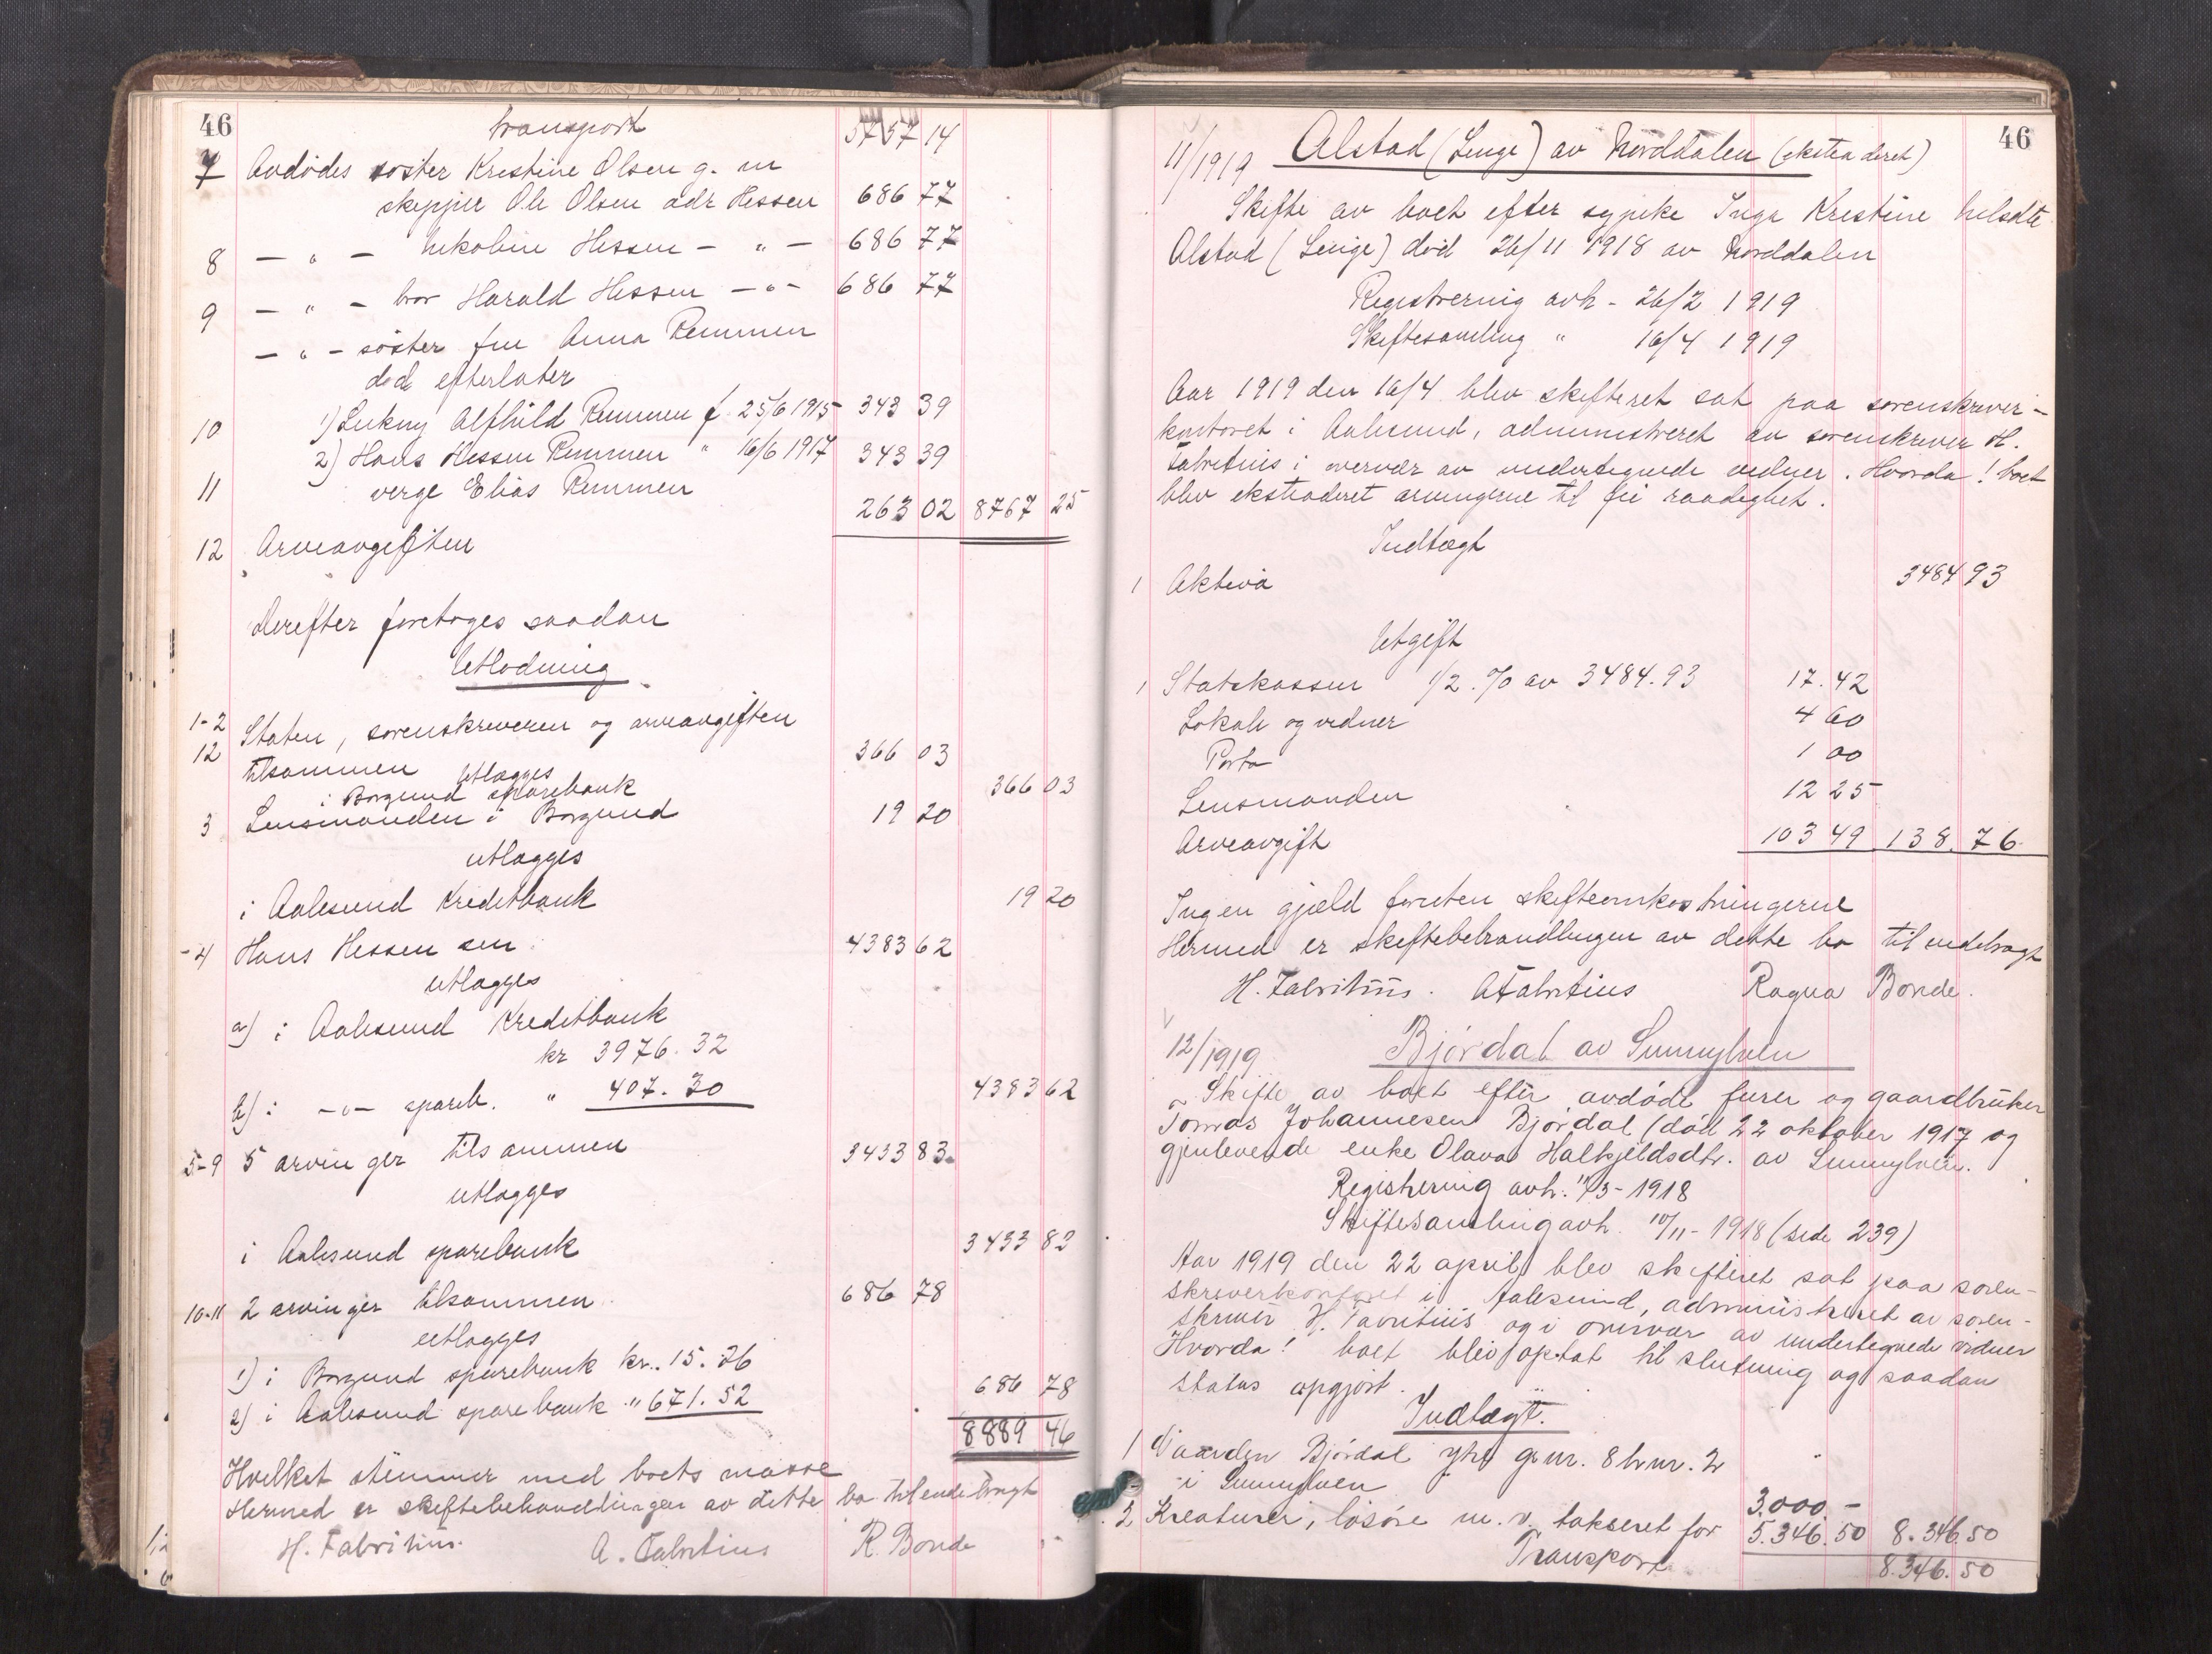 46
transport 5757 14
7 Avdødes søster Kristine Olsen g. m
skipper Ole Olsen adr Hessen 686 77
8 — " — Nikoline Hessen — " — 686 77
9 — " — bror Harald Hessen — " — 686 77
— " — søster fru Anna Remmen
død efterlater
10 1) Alfhild Remmen f. 25/6 1915 343 39
11 2) Hans Hessen Remmen " 16/6 1917 343 39
verge Elias Remmen
12 Arveavgiften 263 02 8767 25
Derefter foretoges saadan
Utlodning
1-2 Staten, sorenskriveren og arveavgiften
12 tilsammen 366 03
utlægges
i Borgund sparebank 366 03
3 Lensmanden i Borgund 19 20
utlægges
i Aalesund Kreditbank 19 20
-4 Hans Hessen sen 4383 62
utlægges
a) i Aalesund Kreditbank
kr 3976.32
b) i -"- spareb. " 407.30 4383 62
5-9 5 arvinger tilsammen 3433 83
utlægges
i Aalesund sparebank 3433 83
10-11 2 arvinger tilsammen 686 78
utlægges
1) i Borgund sparebank kr. 15.26
2) i Aalesund sparebank " 671.52 686 78
8889 46
Hvilket stemmer med boets masse
Hermed er skiftebehandlingen av dette bo tilendebragt
H. Fabritius. A. Fabritius R. Bonde
46
11/1919 Alstad (Linge) av Norddalen (ekstraderet)
Skifte av boet efter sypike Inga Kristine Nilsdtr
Alstad (Linge) død 26/11 1918 av Norddalen
Registrering avh - 26/2 1919
Skiftesamling " 16/4 1919
Aar 1919 den 16/4 blev skifteret sat paa sorenskriver-
kontoret i Aalesund, administreret av sorenskriver H.
Fabritius i overvær av undertegnede vidner. Hvorda! boet
blev ekstraderet arvingerne til fri raadighet.
Indtægt
1 Aktiva 3484 93
Utgift
1 Statskassen 1/2 % av 3484.93 17.42
Lokale og vidner 4 60
Porto 1 00
Lensmanden 12 25
Arveavgift 103 49 138.76
Ingen gjæld foruten skifteomkostningerne
Hermed er skiftebehandlingen av dette bo tilendebragt
H. Fabritius. A Fabritius Ragna Bonde.
12/1919 Bjørdal av Sunnylven
Skifte av boet efter avdøde furer og gaardbruker
Tomas Johannesen Bjørdal (død 22 oktober 1917 og
gjenlevende enke Olava Halkjeldsdtr. av Sunnylven.
Registrering avh. 11/3-1918
Skiftesamling avh. 10/11-1918 (side 239)
Aar 1919 den 22 april blev skifteret sat paa soren-
skriverkontoret i Aalesund, administreret av soren-
skriver H. Fabritius og i overvær av undertegnede vidner
Hvorda! boet blev optat til slutning og saadan
status opgjort.
Indtægt.
1 Gaarden Bjørdal ytre g.nr. 8 br.nr. 2
i Sunnylven 3.000.-
2 Kreaturer, løsøre m. v. takseret for 5.346.50 8.346.50
Transport 8.346.50